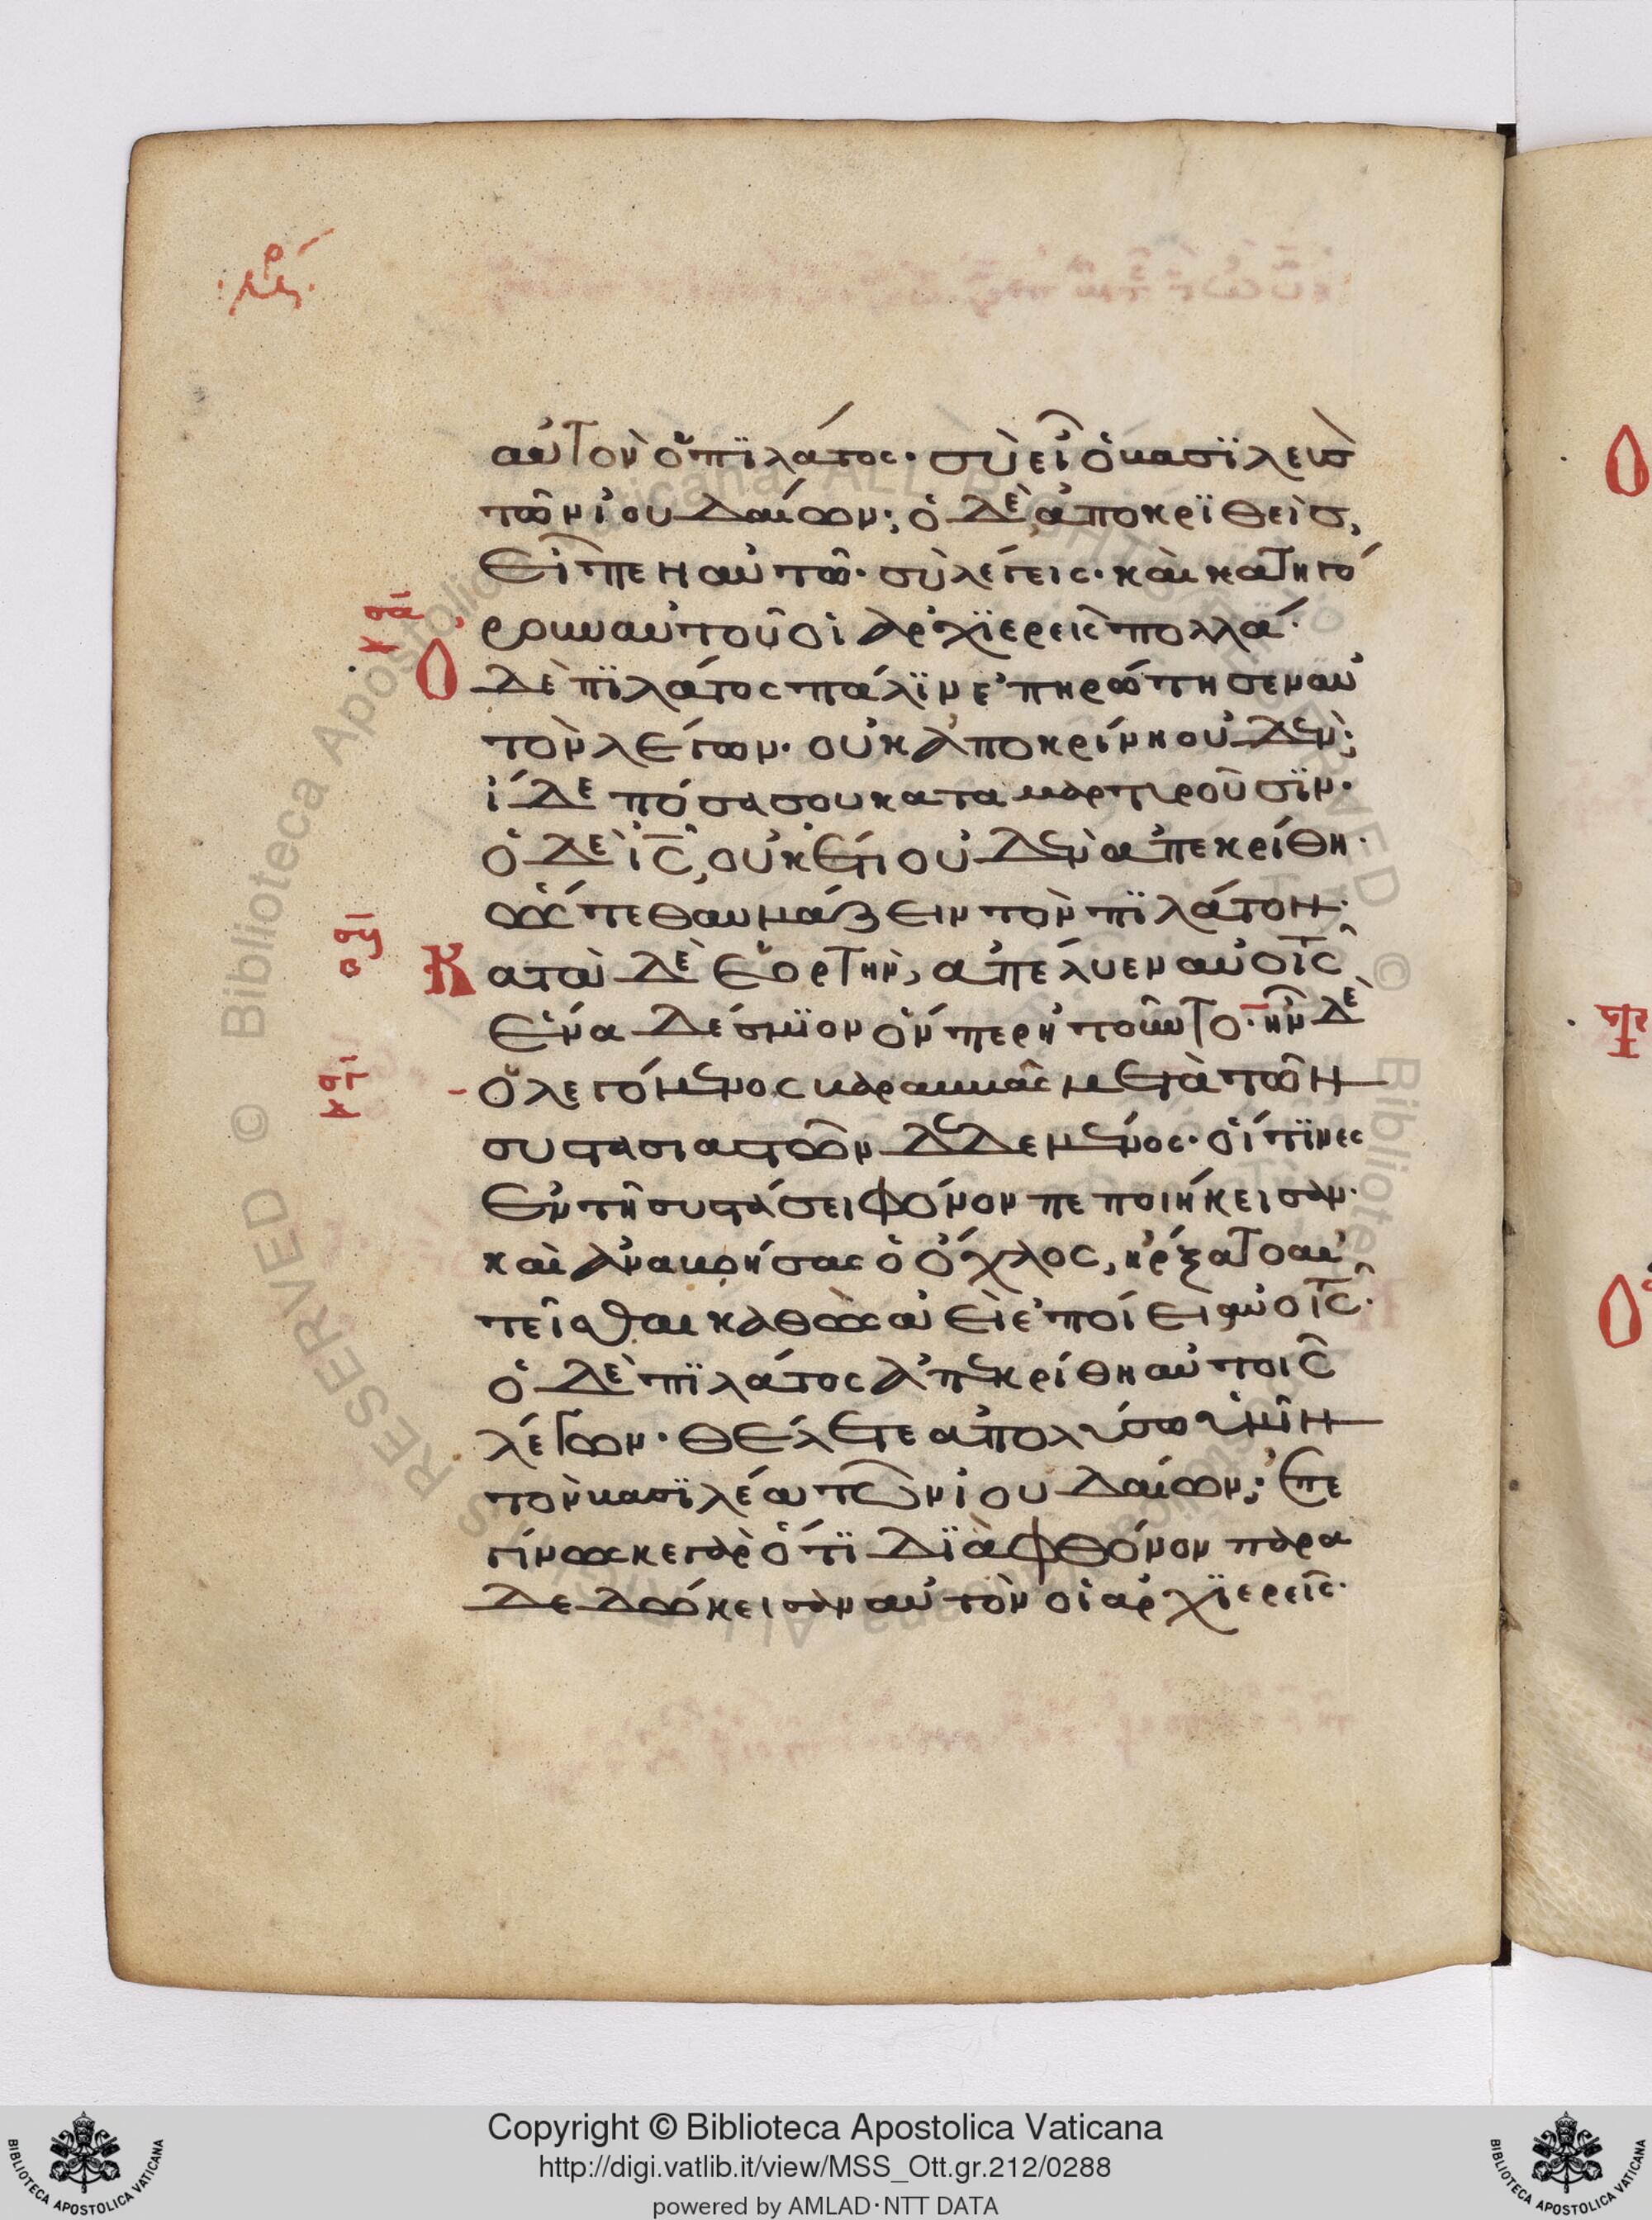 αὐτὸν ὁ πϊλάτος· σὺ εἶ ὁ βασϊλεὺσ
τῶν ἰουδαίων; ὁ δὲ ἀποκρϊθεὶσ,
εἶπεν αὐτῶ· σὺ λέγεις· καὶ κατηγό
ρουν αὐτοῦ οἱ ἀρχϊερεῖς πολλά·
σα
Ο δὲ πϊλάτος πάλϊν ἐπηρώτησεν αὐ
τὸν λέγων· οὐκ ἀποκρίνη οὐδὲν;
ἴδε πόσα σου καταμαρτυροῦσϊν·
ὁ δὲ ις, οὐκέτι οὐδὲν ἀπεκρίθη·
ὥστε θαυμάζειν τὸν πϊλάτον·
Κατὰ δὲ ἑορτὴν, ἀπέλυεν αὐτοῖς
ἕνα δέσμϊον ὅνπερ ἠτοῦντο· ἦν δὲ
ὁ λεγόμενος βαραββᾶς μετὰ τῶν
συστασιαστῶν δεδεμένος· οἵτϊνες
ἐν τῆ συστάσει φόνον πεποιήκεισαν·
καὶ ἀναβοήσας ὁ ὄχλος, ἤρξατο αἰ
τεῖσθαι καθὼς ἀεὶ ἐποίει αὐτοῖς·
ὁ δὲ πϊλάτος ἀπεκρίθη αὐτοῖς
λέγων· θέλετε ἀπολύσω ὑμῖν
τὸν βασϊλέα τῶν ἰουδαίων; ἐπε
γίνωσκε γὰρ ὅτϊ δϊὰ φθόνον παρα
δεδώκεισαν αὐτὸν οἱ ἀρχϊερεῖς·
Copyright © Biblioteca Apostolica Vaticana
http://digi.vatlib.it/view/MSS_Ott.gr.212/0288
powered by AMLAD·NTT DATA
BIBLIOTECA APOSTOLICA VATICANA
BIBLIOTECA APOSTOLICA VATICANA